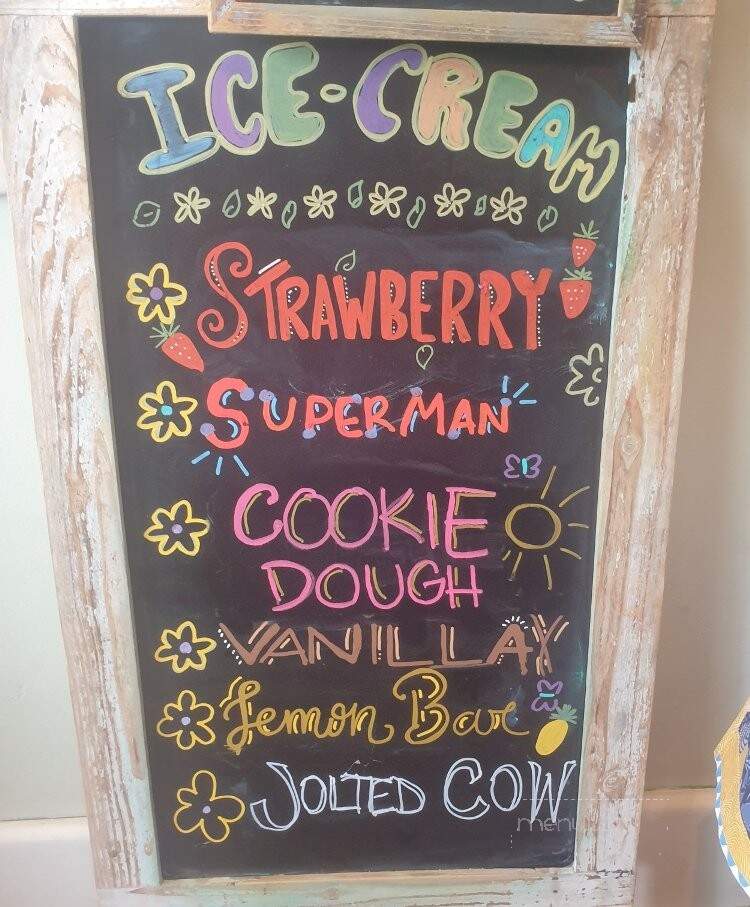 ICE-CREAM
STRAWBERRY
SUPERMAN
COOKIE
DOUGH
VANILLA
Lemon Bar
JOLTED COW